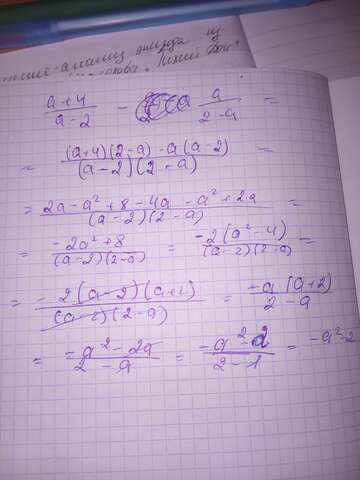 эпизода из
Тихий Дон".
a+4/a-2 - a/2-a =
= (a+4)(2-a)-a(a-2)/(a-2)(2-a) =
= 2a-a²+8-4a-a²+2a/(a-2)(2-a) =
= -2a²+8/(a-2)(2-a) = -2(a²-4)/(a-2)(2-a) =
= -2(a-2)(a+2)/(a-2)(2-a) = -a(a+2)/2-a
= -a²-2a/2-a = -a²-2/2-1 = -a²-2